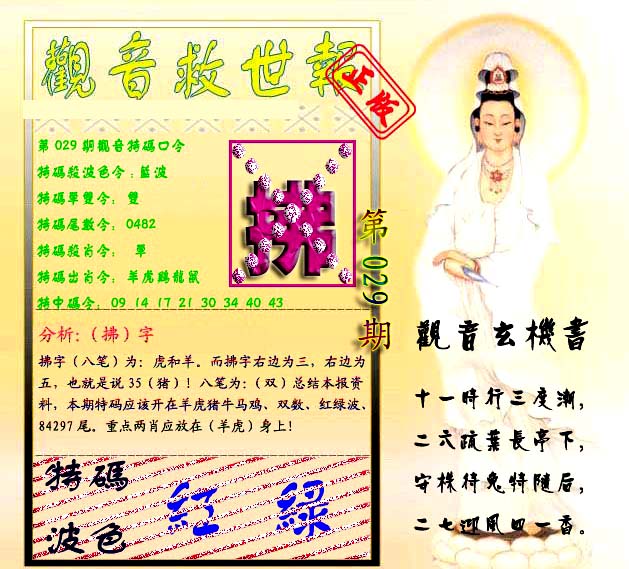 觀音救世報
正版
第029期觀音特碼口令
特碼殺波色令：藍波
特碼單雙令： 雙
特碼尾數令： 0482
特碼殺肖令： 單
特碼出肖令：羊虎鷄龍鼠
特中碼令：09 14 17 21 30 34 40 43
拂
第029期
分析:（拂）字
拂字（八笔）为：虎和羊。而拂字右边为三，右边为
五，也就是说35（猪）！八笔为：（双）总结本报资
料，本期特码应该开在羊虎猪牛马鸡、双数、红绿波、
84297尾。重点两肖应放在（羊虎）身上！
特碼
波色
紅 綠
觀音玄機書
十一時行三度漸，
二六疏葉長亭下，
守株待兔將隨后，
二七迎風四一香。